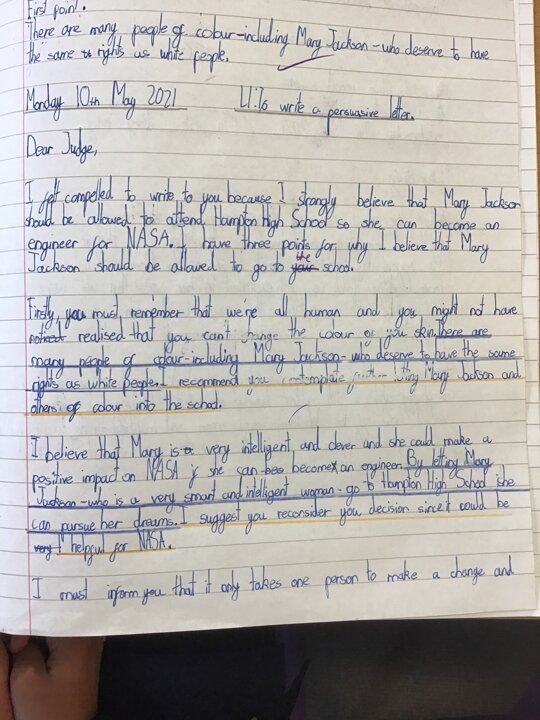 First point.
There are many people of colour-including Mary Jackson-who deserve to have
the same rights as white people.
Monday 10th May 2021 LI: To write a persuasive letter.
Dear Judge,
I felt compelled to write to you because I strongly believe that Mary Jackson
should be allowed to attend Hampton High School so she can become an
engineer for NASA. I have three points for why I believe that Mary
Jackson should be allowed to go to your the school.
Firstly, you must remember that we're all human and you might not have
noticed realised that you can't change the colour of you skin. There are
many people of colour-including Mary Jackson-who deserve to have the same
rights as white people. I recommend you contemplate letting Mary Jackson and
others of colour into the school.
I believe that Mary is a very intelligent, and clever and she could make a
positive impact on NASA if she can become an engineer. By letting Mary
Jackson-who is a very smart and intelligent woman-go to Hampton High School she
can pursue her dreams. I suggest you reconsider you decision since it could be
very helpful for NASA.
I must inform you that it only takes one person to make a change and